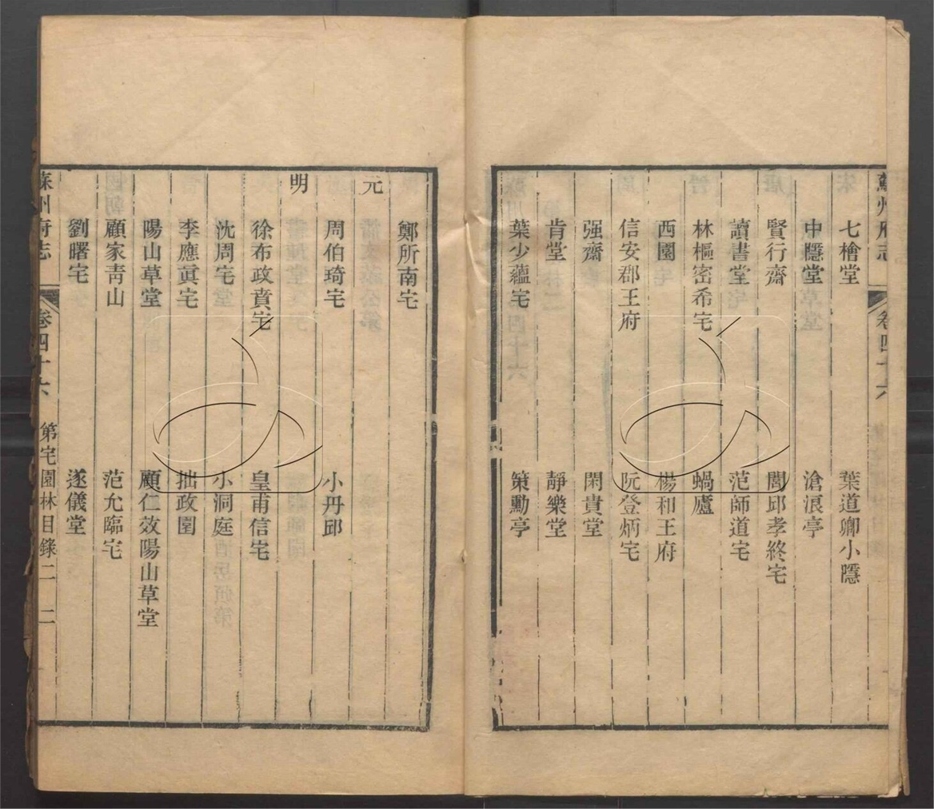 蘇州府志 卷四十六
七檜堂 葉道卿小隱
中隱堂 滄浪亭
賢行齋 閭邱孝終宅
讀書堂 范師道宅
林樞密希宅 蝸廬
西園 楊和王府
信安郡王府 阮登炳宅
强齋 閑貴堂
肯堂 靜樂堂
葉少蘊宅 策勳亭
鄭所南宅
元
周伯琦宅 小丹邱
明
徐布政賁宅 皇甫信宅
沈周宅 小洞庭
李應眞宅 拙政園
陽山草堂 顧仁效陽山草堂
顧家靑山 范允臨宅
劉曙宅 遂儀堂
蘇州府志 卷四十六 第宅園林目錄二 二